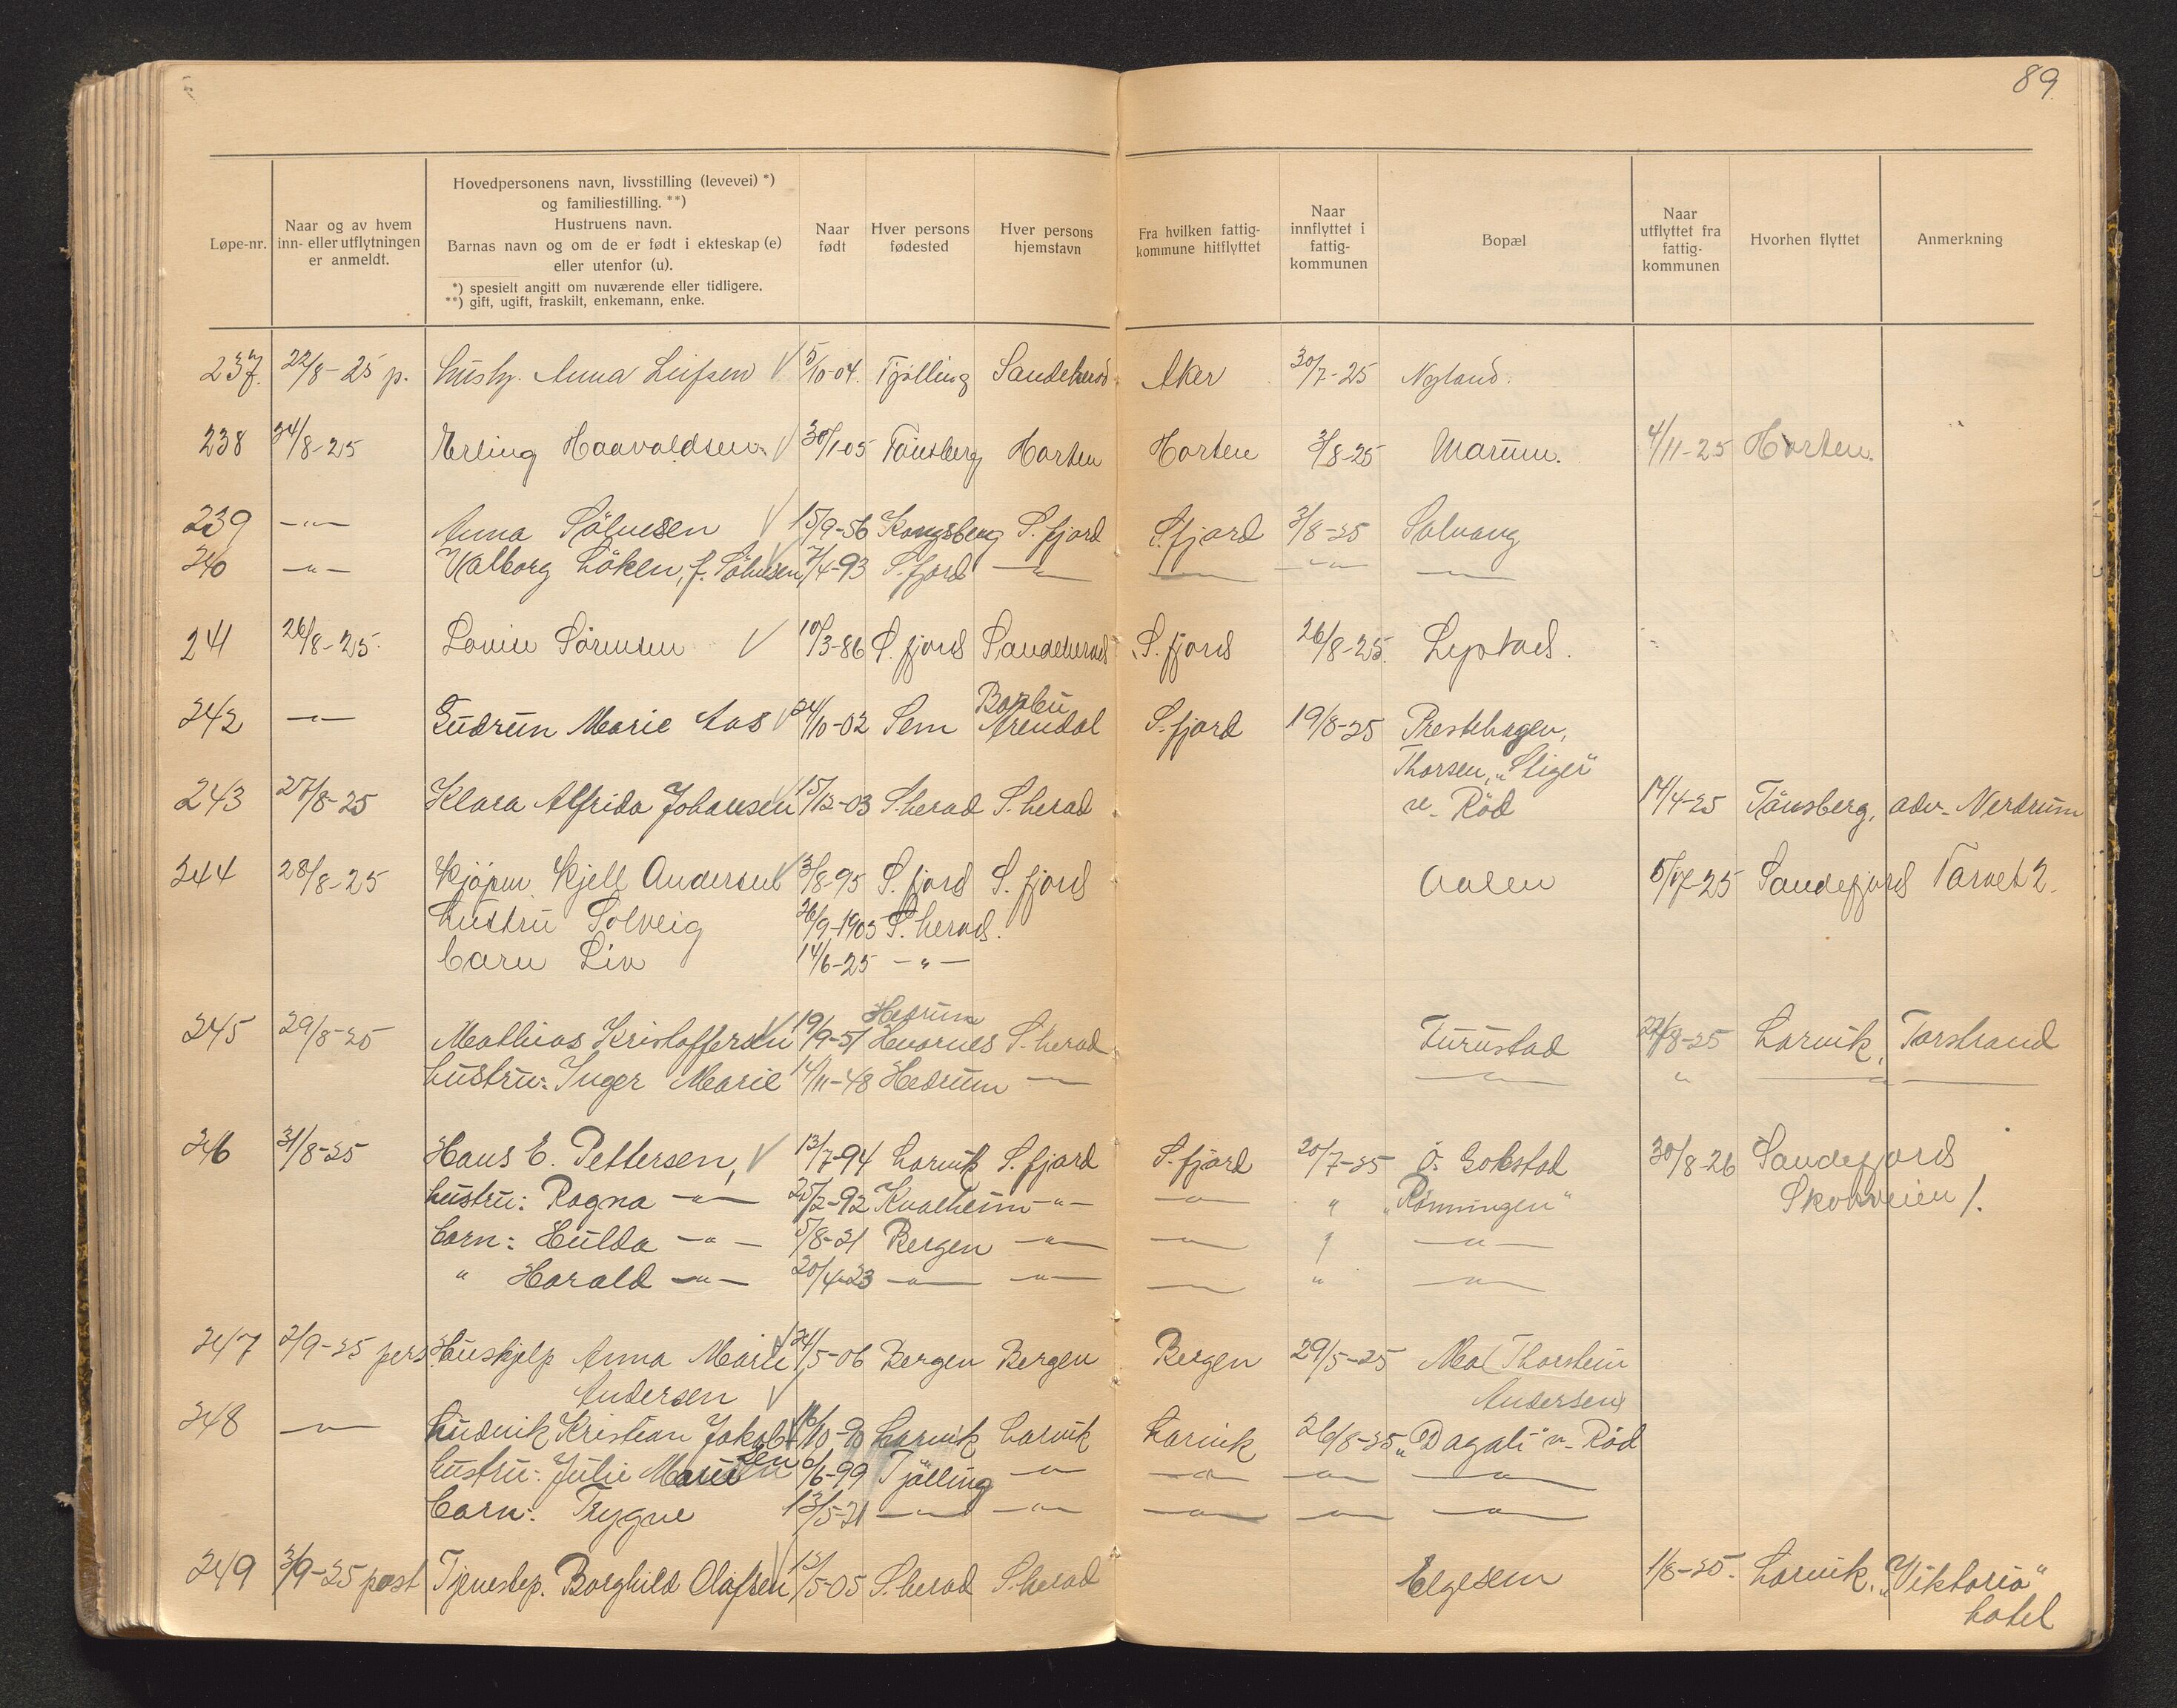 89.
Løpe-nr.
Naar og av hvem
inn- eller utflytningen
er anmeldt.
Hovedpersonens navn, livsstilling (levevei) *)
og familiestilling. **)
Hustruens navn.
Barnas navn og om de er født i ekteskap (e)
eller utenfor (u).
*) spesielt angitt om nuværende eller tidligere.
**) gift, ugift, fraskilt, enkemann, enke.
Naar
født
Hver persons
fødested
Hver persons
hjemstavn
Fra hvilken fattig-
kommune hitflyttet
Naar
innflyttet i
fattig-
kommunen
Bopæl
Naar
utflyttet fra
fattig-
kommunen
Hvorhen flyttet
Anmerkning
237. 22/8-25 p. hushj. Anna Leifsen 5/10-04. Tjølling Sandeherad Aker 30/7-25 Nyland.
238 24/8-25 Erling Haavaldsen 30/1-05 Tønsberg Horten Horten 3/8-25 Marum. 4/11-25 Horten.
239 -"- Anna Sölvesen 15/9-56 Kongsberg S.fjord S.fjord 3/8-25 Solvang
240 -"- Valborg Löken, f. Sölvesen 7/4-93 S.fjord -"- -"- -"- -"-
241 26/8-25. Lovise Sörensen 10/3-86 S.fjord Sandeherad S.fjord 26/8-25. Lystad.
242 -"- Gudrun Marie Aas 24/10-02 Sem Barbu
Arendal S.fjord 19/8-25 Prestehagen,
Thorsen, "Stiger"
243 27/8-25 Klara Alfrida Johansen 15/12-03 S.herad S.herad v. Röd 14/4-25 Tönsberg, adv. Nerdrum
244 28/8-25 Kjøpm. Kjell Andersen 3/8-95 S.fjord S.fjord Aasen 5/7-25 Sandefjord Torvet 2.
hustru Solveig 26/9-1903 S.herad.
barn Liv 14/6-25 -"-
Hedrum
245 29/8-25 Mathias Kristoffersen 19/9-51 Hvarnes S.herad Furustad 27/8-25 Larvik, Torstrand
hustru: Inger Marie 14/11-48 Hedrum -"- -"- " -"-
246 31/8-25 Hans E. Pettersen, 13/7-94 Larvik S.fjord S.fjord 20/7-25 Ö. Gokstad 30/8-26 Sandefjord
hustru: Ragna -"- 25/2-92 Kvalheim -"- -"- " "Rønningen" Skovveien 1.
barn: Hulda -"- 5/8-21 Bergen -"- -"- " -"-
" Harald -"- 20/4-23 -"- -"- -"- " -"-
247 2/9-25 pers. Huskjelp Anna Marie 24/5-06 Bergen Bergen Bergen 29/5-25 Mal Thorstein
Andersen Andersen
248 -"- Ludvik Kristian Jakob- 16/10-90 Larvik Larvik Larvik 26/8-25 "Dagali" v. Röd
sen
hustru: Julie Marie 6/6-99 Tjölling -"- -"- -"- -"-
barn: Trygve 13/5-21 -"- -"- -"- -"- -"-
249 3/9-25 post Tjenestep. Borghild Olafsen 13/5-05 S.herad S.herad Elgesem 1/8-25. Larvik. "Viktoria"
hotel